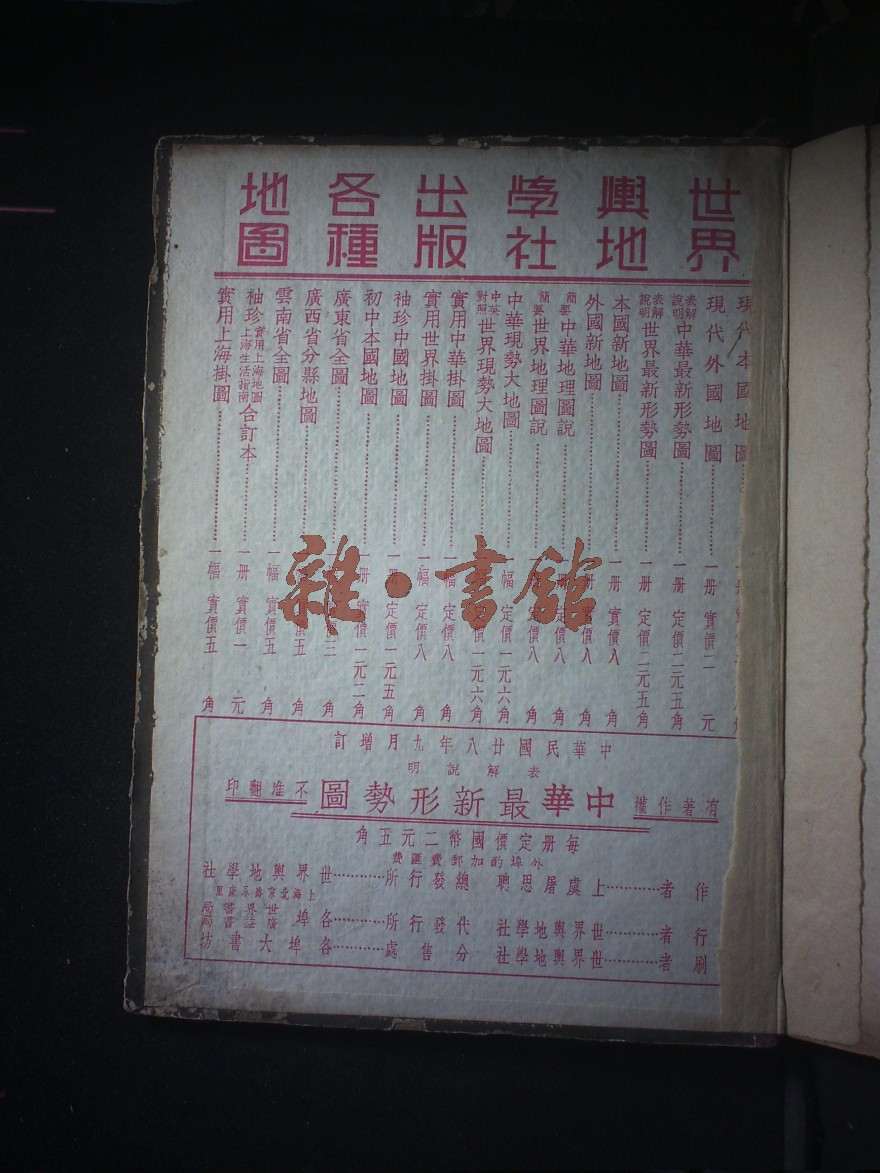 世界輿地學社出版各種地圖
現代本國地圖
現代外國地圖 一册 實價二元
表解說明 中華最新形勢圖 一册 定價二元五角
表解說明 世界最新形勢圖 一册 定價二元五角
本國新地圖 一册 實價八角
外國新地圖 一册 定價八角
簡要 中華地理圖說 一册 定價八角
簡要 世界地理圖說 一册 定價八角
中華現勢大地圖 一幅 定價一元六角
中英對照 世界現勢大地圖 定價一元六角
實用中華掛圖 一幅 定價八角
實用世界掛圖 一幅 定價八角
袖珍中國地圖 一册 定價一元五角
初中本國地圖 一册 實價一元二角
廣東省全圖 一 三角
廣西省分縣地圖 實價五角
雲南省全圖 一幅 實價五角
袖珍 實用上海地圖 上海生活指南 合訂本 一册 實價一元
實用上海掛圖 一幅 實價五角
中華民國廿八年九月增訂
表解說明
有著作權 中華最新形勢圖 不准翻印
每册定價國幣二元五角
外埠酌加郵費匯費
作者…………上虞屠思聰
行者…………世界輿地學社
刷者…………世界輿地學社
總發行所…………世界輿地學社
上海北京路永康里
代發行所…………各埠 世界書局 廣益書局
分售處…………各埠大書坊
雜·書館